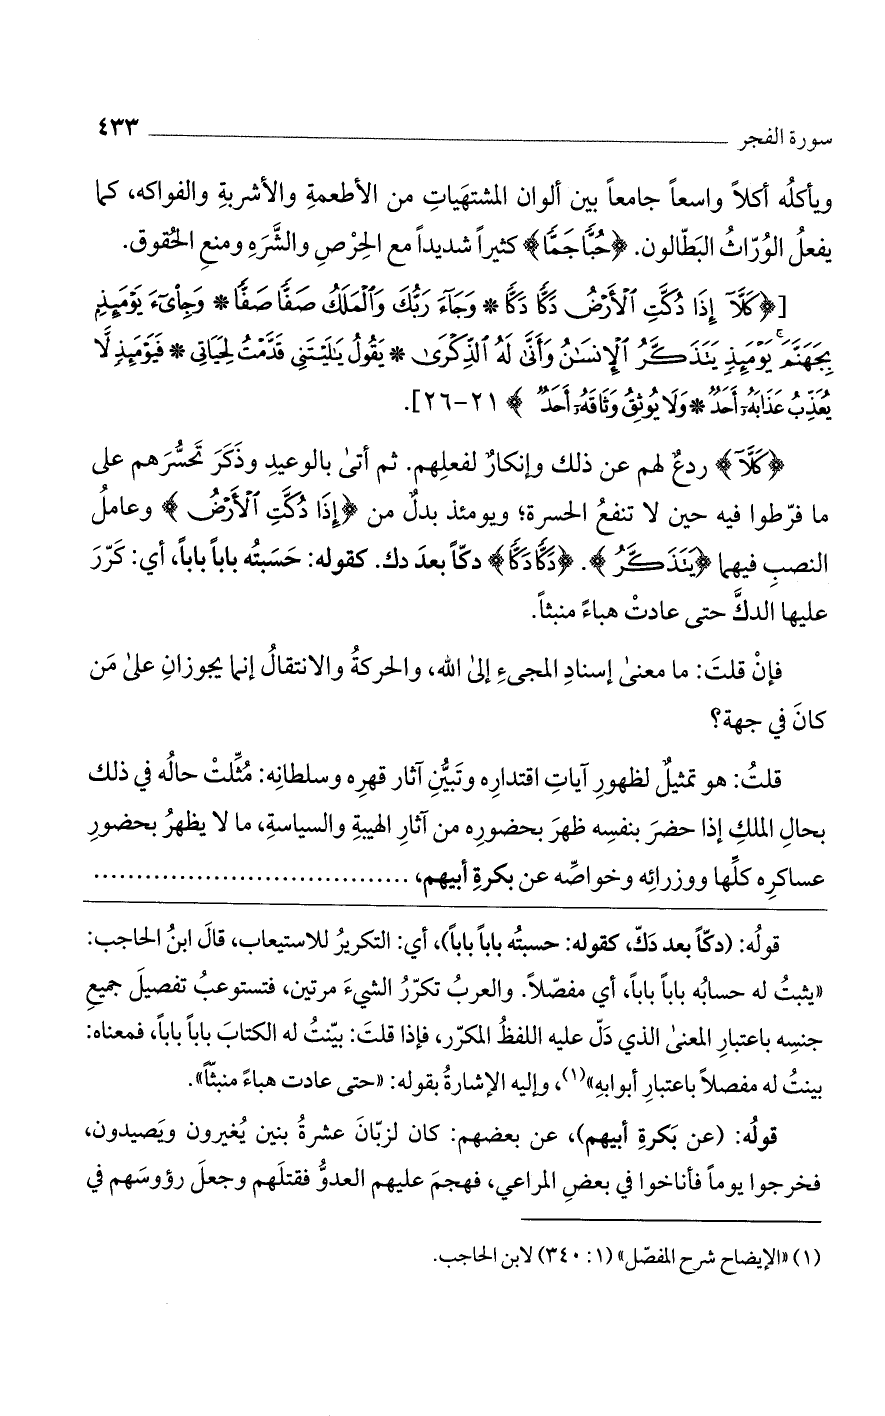 سورة الفجر ٤٣٣
ويأكلُه أكلاً واسعاً جامعاً بين ألوان المشتهَياتِ من الأطعمةِ والأشربةِ والفواكه، كما
يفعلُ الوُرّاثُ البَطّالون. ﴿حُبًّا جَمًّا﴾ كثيراً شديداً مع الحِرْصِ والشَّرَهِ ومنعِ الحُقوق.
[﴿كَلَّآ إِذَا دُكَّتِ ٱلْأَرْضُ دَكًّا دَكًّا * وَجَآءَ رَبُّكَ وَٱلْمَلَكُ صَفًّا صَفًّا * وَجِاْىٓءَ يَوْمَئِذٍۭ
بِجَهَنَّمَ ۚ يَوْمَئِذٍ يَتَذَكَّرُ ٱلْإِنسَٰنُ وَأَنَّىٰ لَهُ ٱلذِّكْرَىٰ * يَقُولُ يَٰلَيْتَنِى قَدَّمْتُ لِحَيَاتِى * فَيَوْمَئِذٍ لَّا
يُعَذِّبُ عَذَابَهُۥٓ أَحَدٌ * وَلَا يُوثِقُ وَثَاقَهُۥٓ أَحَدٌ ﴾ ٢١-٢٦].
﴿كَلَّآ﴾ ردعٌ لهم عن ذلك وإنكارٌ لفعلِهم. ثم أتىٰ بالوعيدِ وذَكَرَ تَحسُّرَهم على
ما فرّطوا فيه حين لا تنفعُ الحسرة؛ ويومئذ بدلٌ من ﴿إِذَا دُكَّتِ ٱلْأَرْضُ ﴾ وعاملُ
النصبِ فيهما ﴿يَتَذَكَّرُ ﴾. ﴿دَكًّا دَكًّا﴾ دكّاً بعدَ دك. كقوله: حَسَبتُه باباً باباً، أي: كَرّرَ
عليها الدكَّ حتى عادتْ هباءً منبثاً.
فإنْ قلتَ: ما معنىٰ إسنادِ المجيءِ إلىٰ الله، والحركةُ والانتقالُ إنما يجوزانِ علىٰ مَن
كانَ في جهة؟
قلتُ: هو تمثيلٌ لظهورِ آياتِ اقتدارِه وتَبيُّنِ آثار قهرِه وسلطانِه: مُثِّلتْ حالُه في ذلك
بحالِ الملكِ إذا حضرَ بنفسِه ظهرَ بحضورِه من آثارِ الهيبةِ والسياسةِ، ما لا يظهرُ بحضورِ
عساكرِه كلِّها ووزرائِه وخواصِّه عن بكرةِ أبيهم، ....................................
قولُه: (دكّاً بعد دَكّ، كقوله: حسبتُه باباً باباً)، أي: التكريرُ للاستيعاب، قالَ ابنُ الحاجب:
«يثبتُ له حسابُه باباً باباً، أي مفصّلاً. والعربُ تكرّرُ الشيءَ مرتين، فتستوعبُ تفصيلَ جميعِ
جنسِه باعتبارِ المعنىٰ الذي دَلّ عليه اللفظُ المكرّر، فإذا قلتَ: بيّنتُ له الكتابَ باباً باباً، فمعناه:
بينتُ له مفصلاً باعتبارِ أبوابهِ»(١)، وإليه الإشارةُ بقوله: «حتى عادت هباءً منبثّاً».
قولُه: (عن بَكرةِ أبيهم)، عن بعضهم: كان لزبّانَ عشرةُ بنين يُغيرون ويَصيدون،
فخرجوا يوماً فأناخوا في بعضِ المراعي، فهجمَ عليهم العدوُّ فقتلَهم وجعلَ رؤوسَهم في
(١) «الإيضاح شرح المفصّل» (١: ٣٤٠) لابن الحاجب.